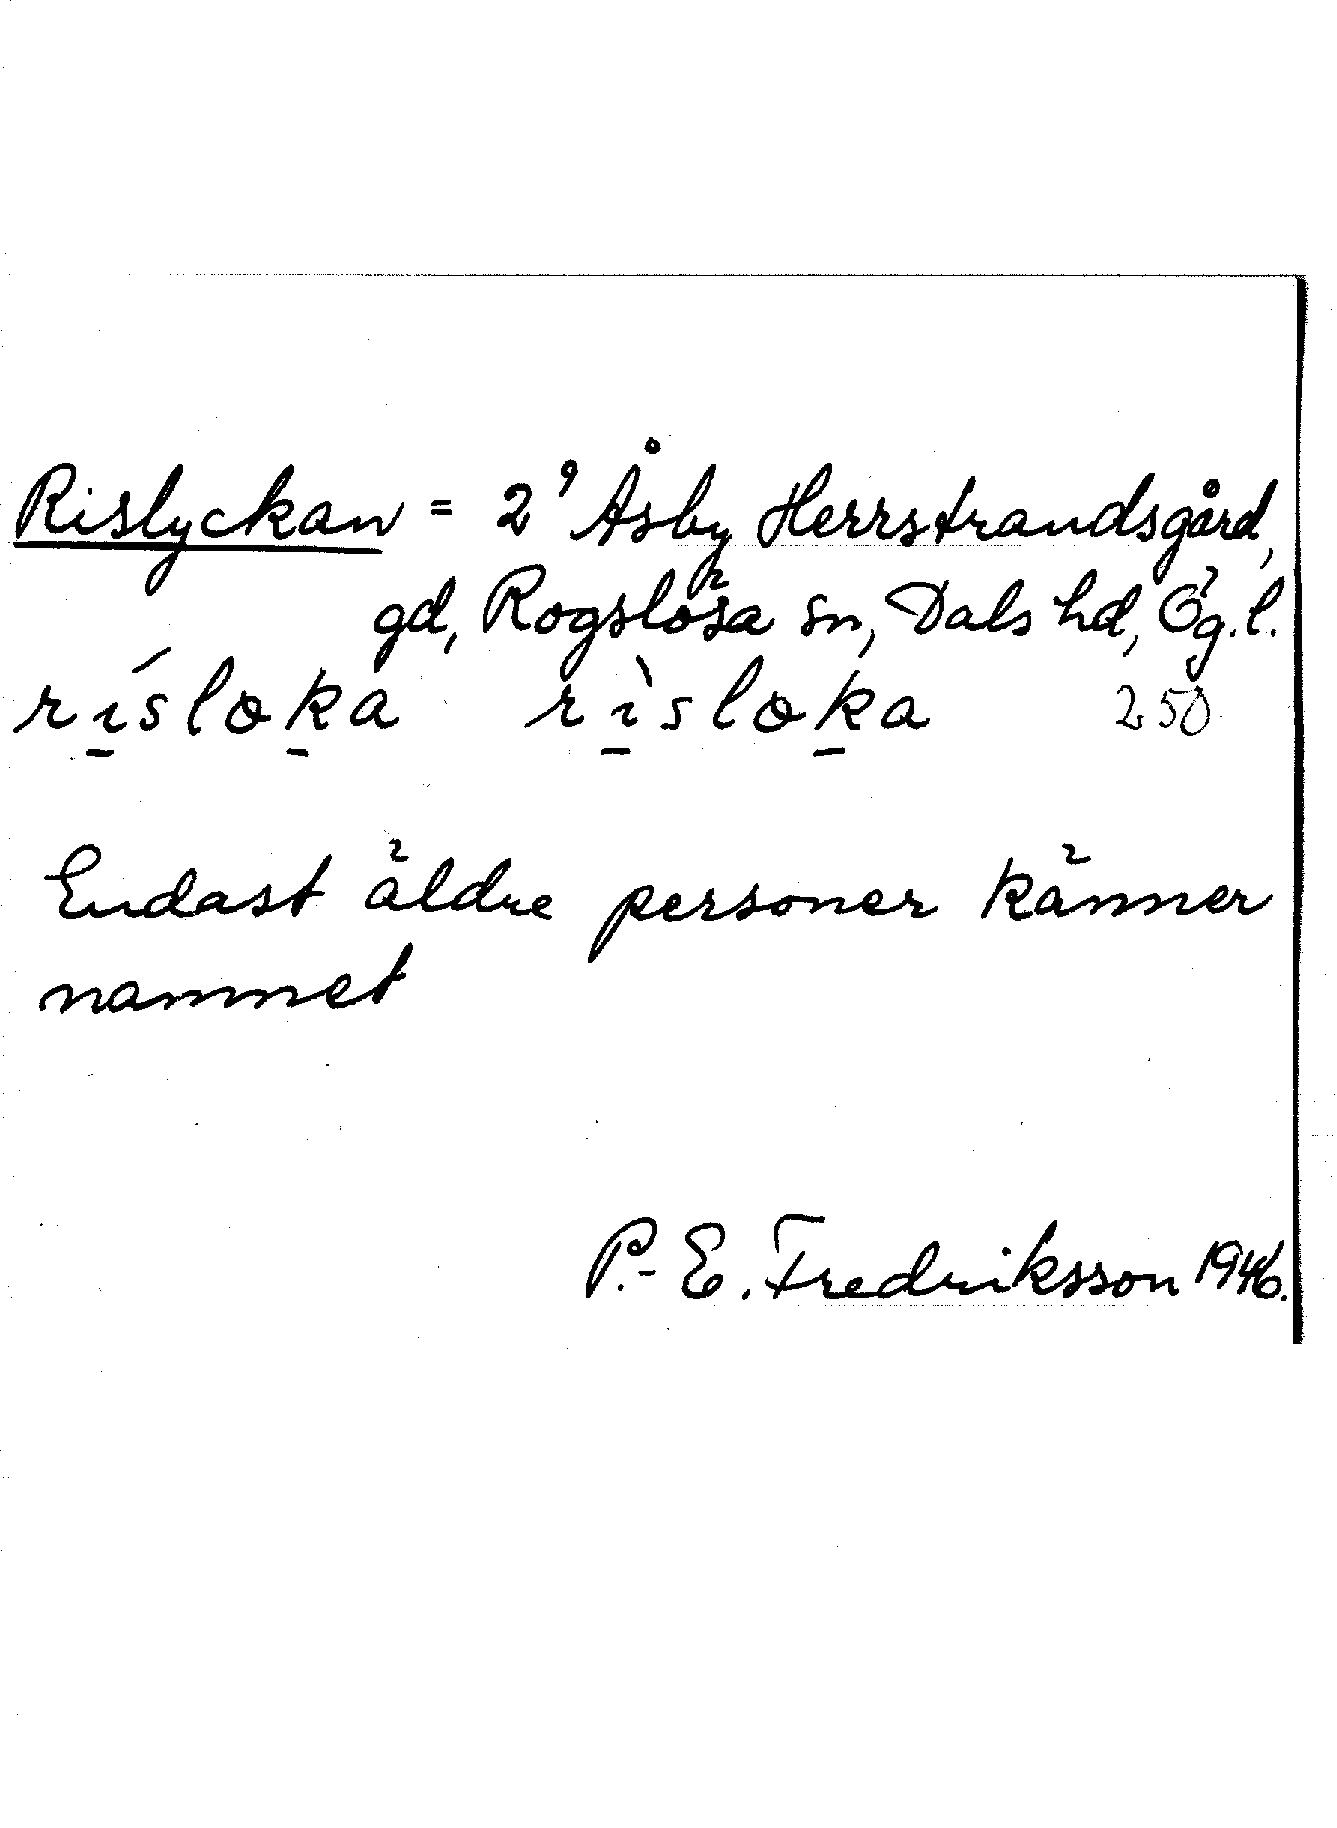 Rislyckan = 2⁹ Åsby Herrstrandsgård,
gd, Rogslösa sn, Dals hd, Ög.l.
rí̱slɵḵa rì̱slɵḵa 250
Endast äldre personer känner
namnet
P.-E. Fredriksson 1946.